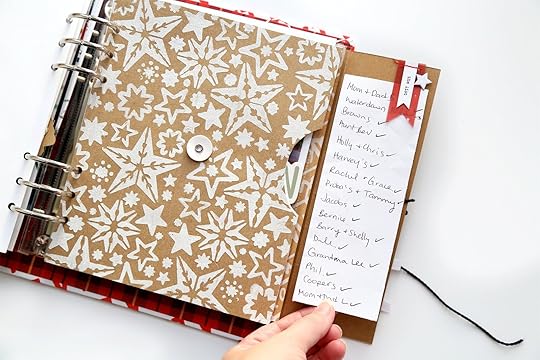 Mom + Dad
Waterdown
Browns ✓
Aunt Bev ✓
Holly + Chris ✓
Harvey's ✓
Rachel + Grace ✓
+ Tammy ✓
Jacobs ✓
Bernie ✓
Barry + Shelly ✓
Dale ✓
Grandma Lee ✓
Phil ✓
Coopers ✓
Mom + Dad L ✓